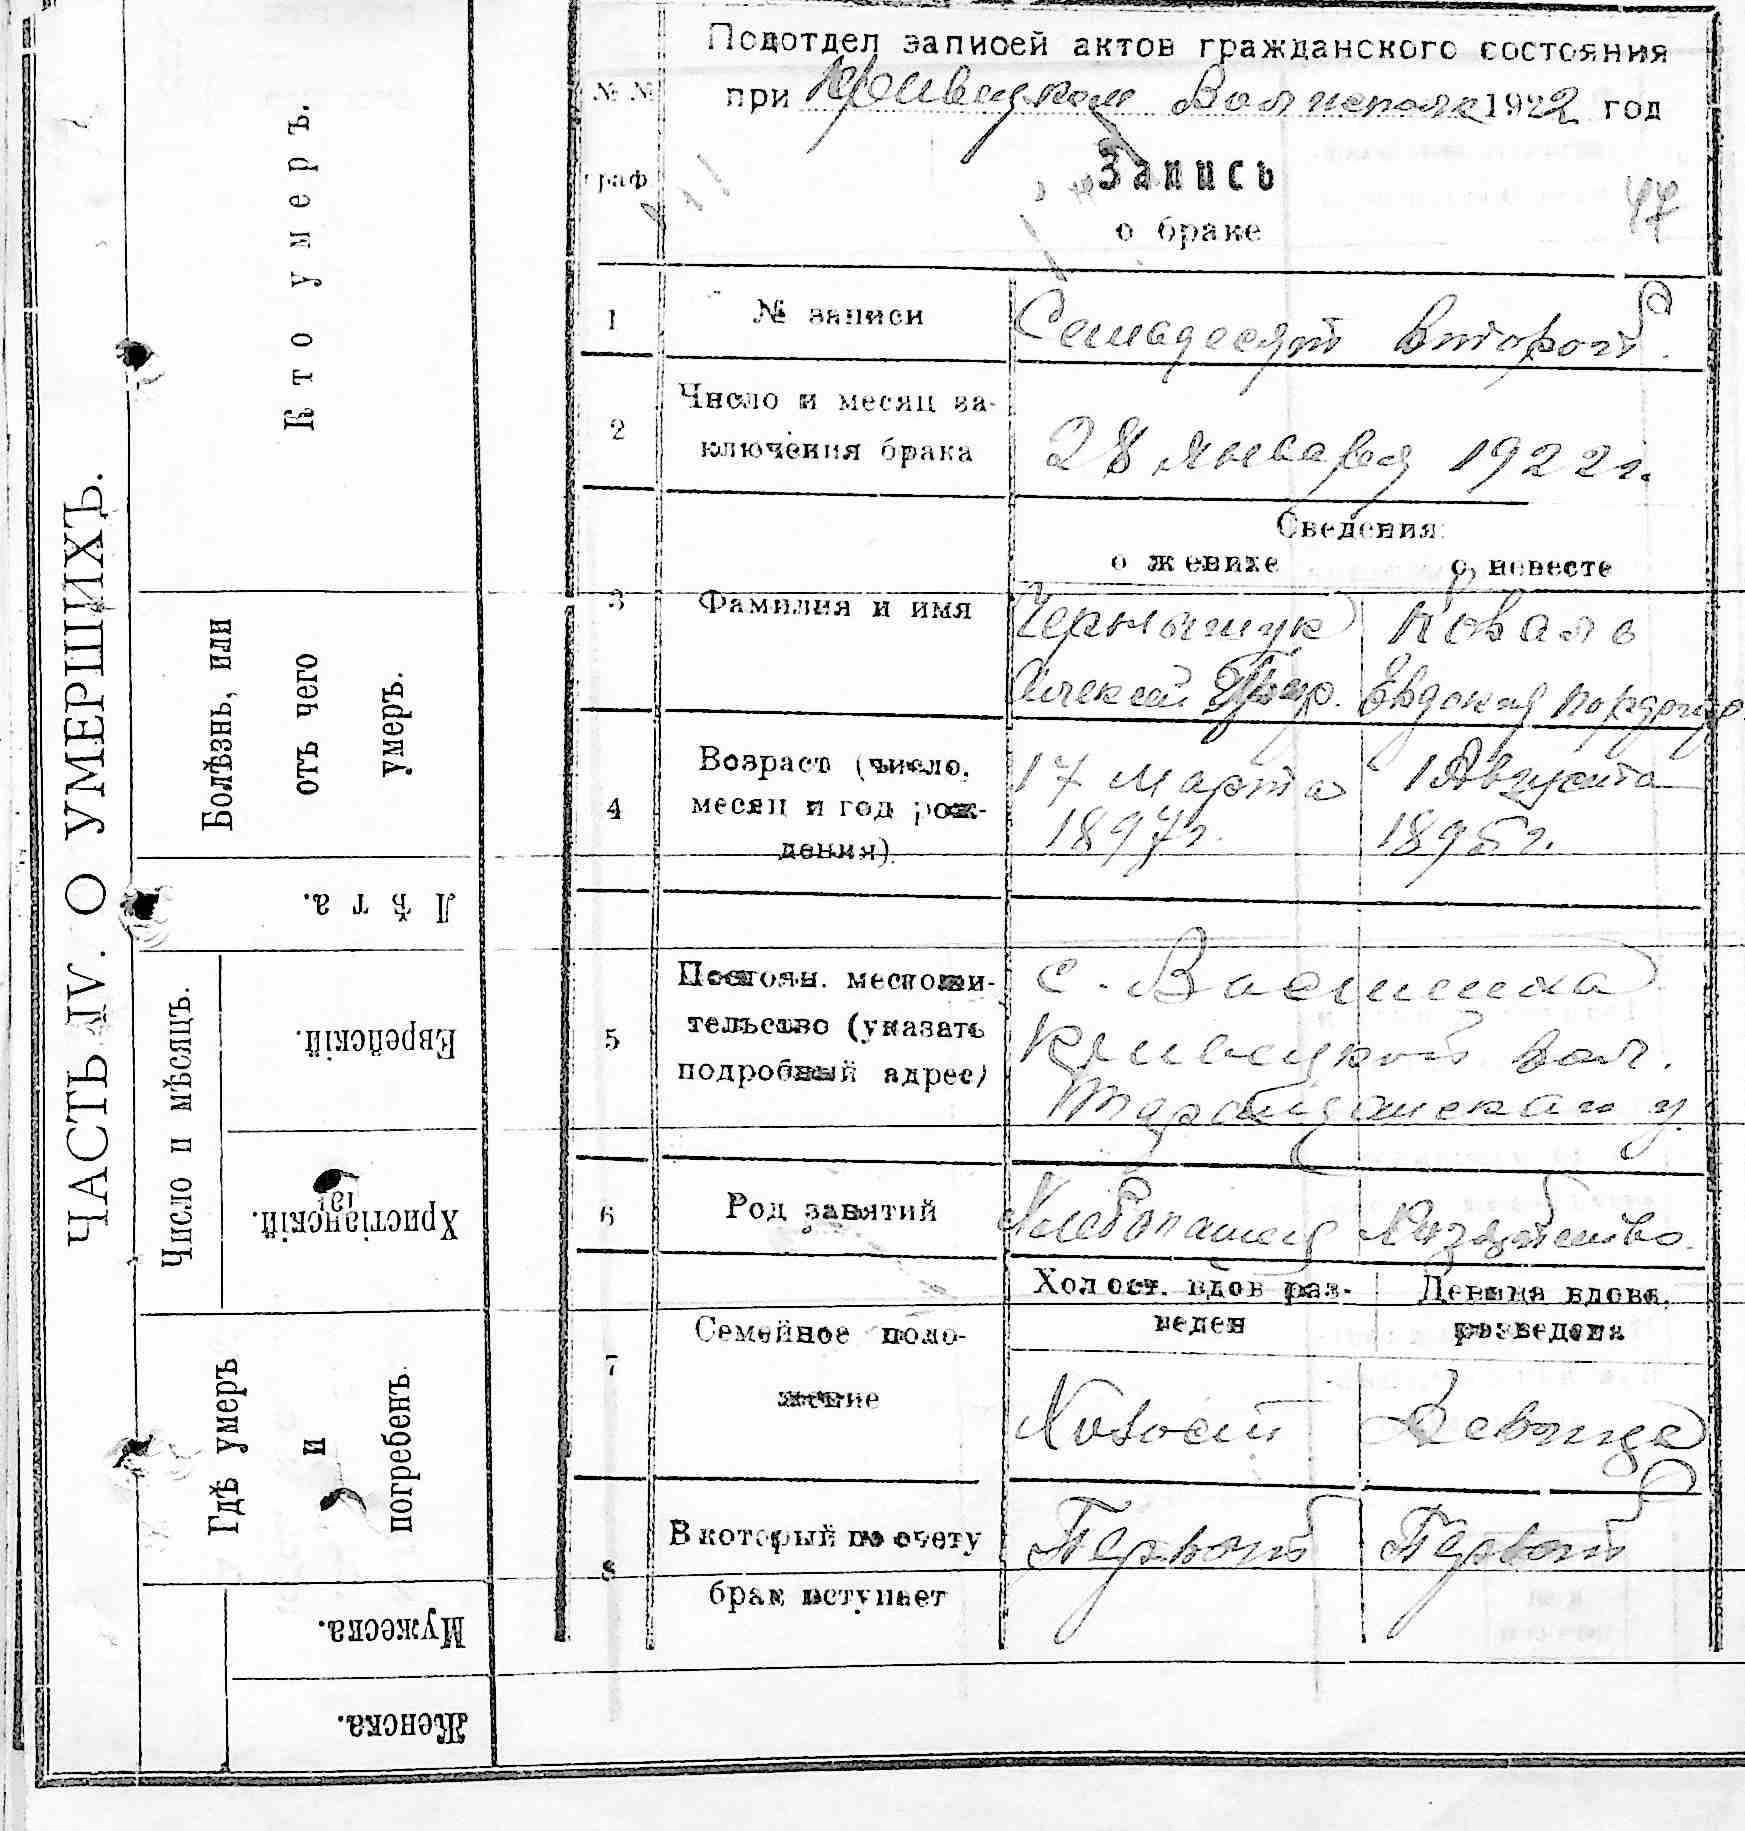 ЧАСТЬ IV. О УМЕРШИХЪ.
Кто умеръ.
Болѣзнь, или
отъ чего
умеръ.
Лѣта.
Число и мѣсяцъ.
Еврейскій.
Христіанскій.
191
Гдѣ умеръ
и
погребенъ
Мужеска.
Женска.
№ №
граф
Подотдел записей актов гражданского состояния
при Кривецком Волисполк 1922 год
Запись
47
о браке
1
№ записи
Семьдесят второй
2
Число и месяц за-
ключения брака
28 января 1922 г.
Сведения
о женихе
о невесте
3
Фамилия и имя
Чернышук
Коваль
Алексей Григ.
Евдокия Порфир.
4
Возраст (число,
месяц и год рож-
дения)
17 марта
1897 г.
1 Августа
1895 г.
5
Постоян. местожи-
тельство (указать
подробный адрес)
с.
Кривецкой вол.
Таращанскаго у.
6
Род занятий
Хлебопашец
Хозяйство
7
Семейное поло-
жение
Холост. вдов раз-
веден
Девица вдова,
разведена
Холост
Девица
8
В который по счету
брак вступает
Первый
Первый